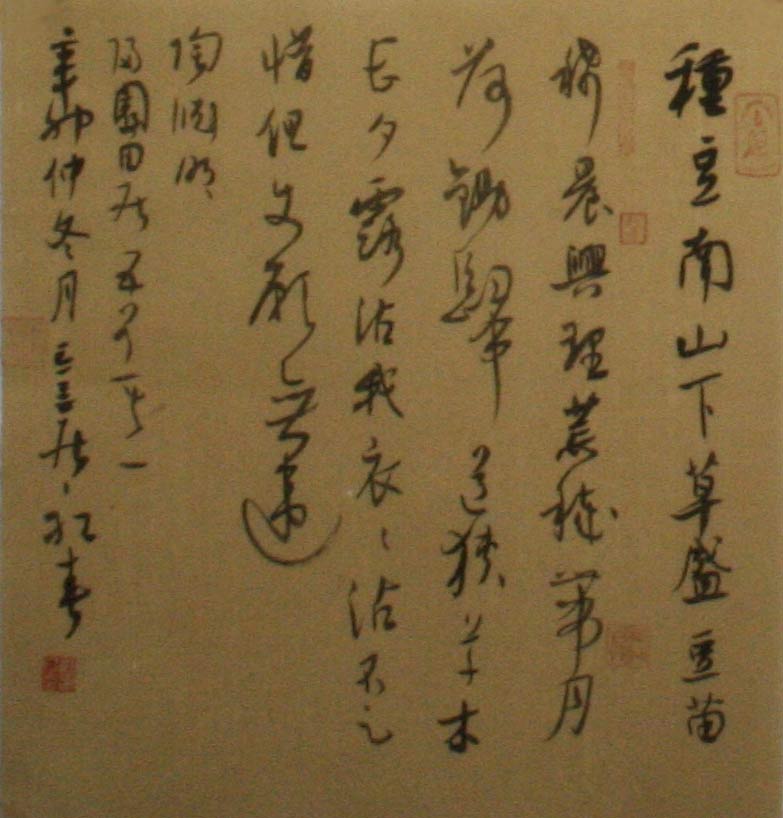 種豆南山下草盛豆苗
稀晨興理荒穢帶月
荷鋤歸道狹草木
長夕露沾我衣〻沾不足
惜但使願無違
陶淵明
歸園田居五首其一
辛卯仲冬月居春